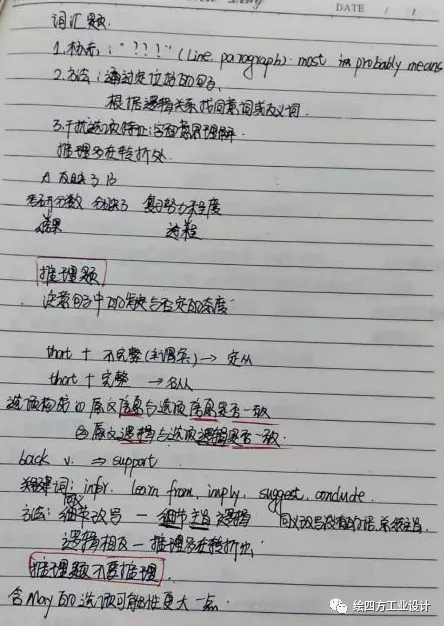 DATE / /
词汇题
1.标志："???" (Line paragraph) most probably means
2.方法：通过定位找的句子,
根据逻辑关系找同意词或反义词.
3.干扰选项特征:字面意思理解.
推理多在转折处.
A 反映了 B
考研分数 反映了 复习努力程度
结果 过程
推理题
注意句子中的肯定与否定的态度
that + 不完整(主谓宾) → 定从
that + 完整 → 名从
选项构成 ① 原文信息与选项信息是否一致
② 原文逻辑与选项逻辑是否一致.
back v. ⇒ support
关键词: infer. learn from. imply. suggest. conclude
方法: 同义改写 — 细节 逻辑
逻辑相反 — 推理多在转折处
推理题不要推理.
含May的选项可能性更大一点.
绘四方工业设计